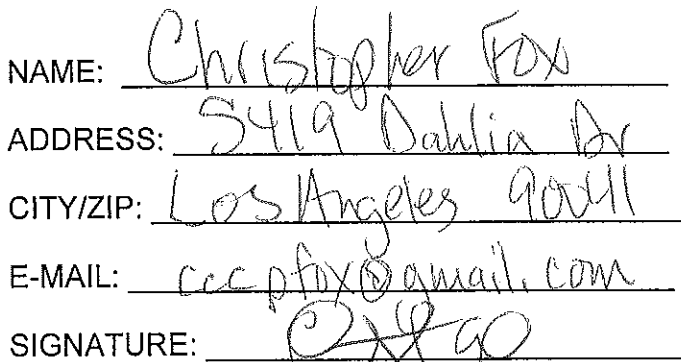 NAME: Christopher Fox
ADDRESS: 5419 Dahlia Dr
CITY/ZIP: Los Angeles 90041
E-MAIL: cccpfox@gmail.com
SIGNATURE: